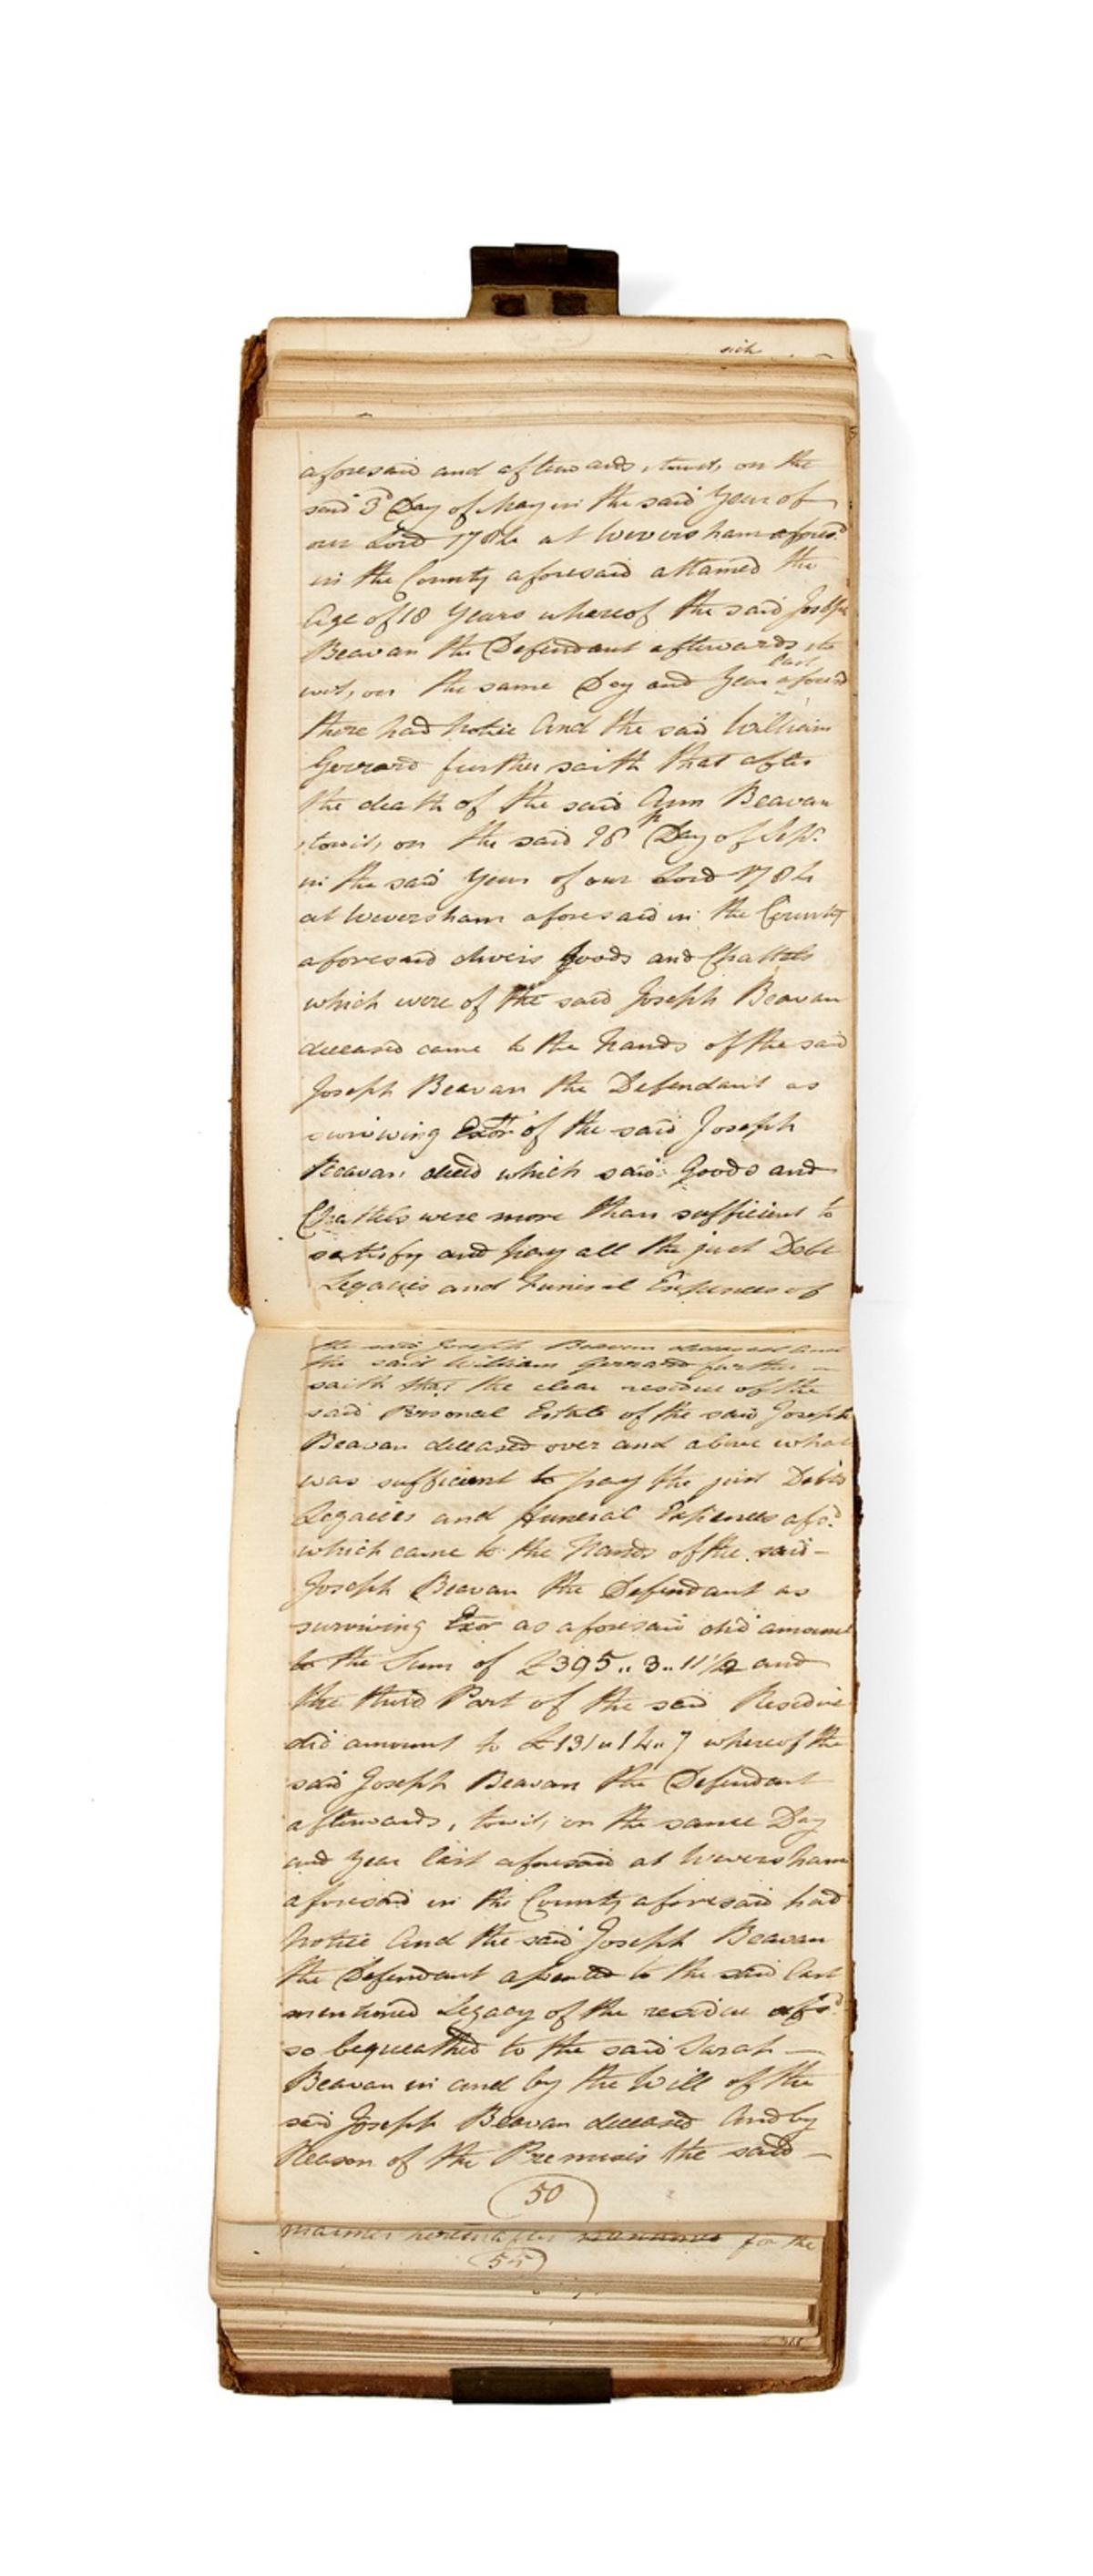 sich
aforesaid and afterwards, towit, on the
said 3d Day of May in the said Year of
our Lord 1784 at Weversham afores.d
in the County aforesaid attained the
Age of 18 Years whereof the said Joseph
Beavan the Defendant afterwards, to
wit, on the same Day and Year last aforesd
there had Notice And the said William
Gerrard further saith that after
the death of the said Ann Beavan
, towit, on the said 28th Day of Sepr.
in the said Year of our Lord 1784
at Weversham aforesaid in the County
aforesaid divers Goods and Chattels
which were of the said Joseph Beavan
deceased came to the Hands of the said
Joseph Beavan the Defendant as
surviving Exor of the said Joseph
Beavan, deced which said Goods and
Chattels were more than sufficient to
satisfy and pay all the just Debts
Legacies and Funeral Expences of
the said Joseph Beavan deceased and
the said William Gerrard further —
saith that the clear residue of the
said Personal Estate of the said Joseph
Beavan deceased over and above what
was sufficient to pay the just Debts
Legacies and funeral Expences afsd.
which came to the Hands of the said —
Joseph Beavan the Defendant as
surviving Exor as aforesaid did amount
to the Sum of £395.. 3.. 11 1/2 and
the third Part of the said Residue
did amount to £131 .. 14 .. 7 whereof the
said Joseph Beavan the Defendant
afterwards, towit, on the same Day
and Year last aforesaid at Weversham
aforesaid in the County aforesaid had
Notice And the said Joseph Beavan
the Defendant assented to the said last
mentioned Legacy of the residue afsd
so bequeathed to the said Sarah —
Beavan in and by the Will of the
said Joseph Beavan deceased And by
Reason of the Premises the said —
50
manner hereinafter for the
55